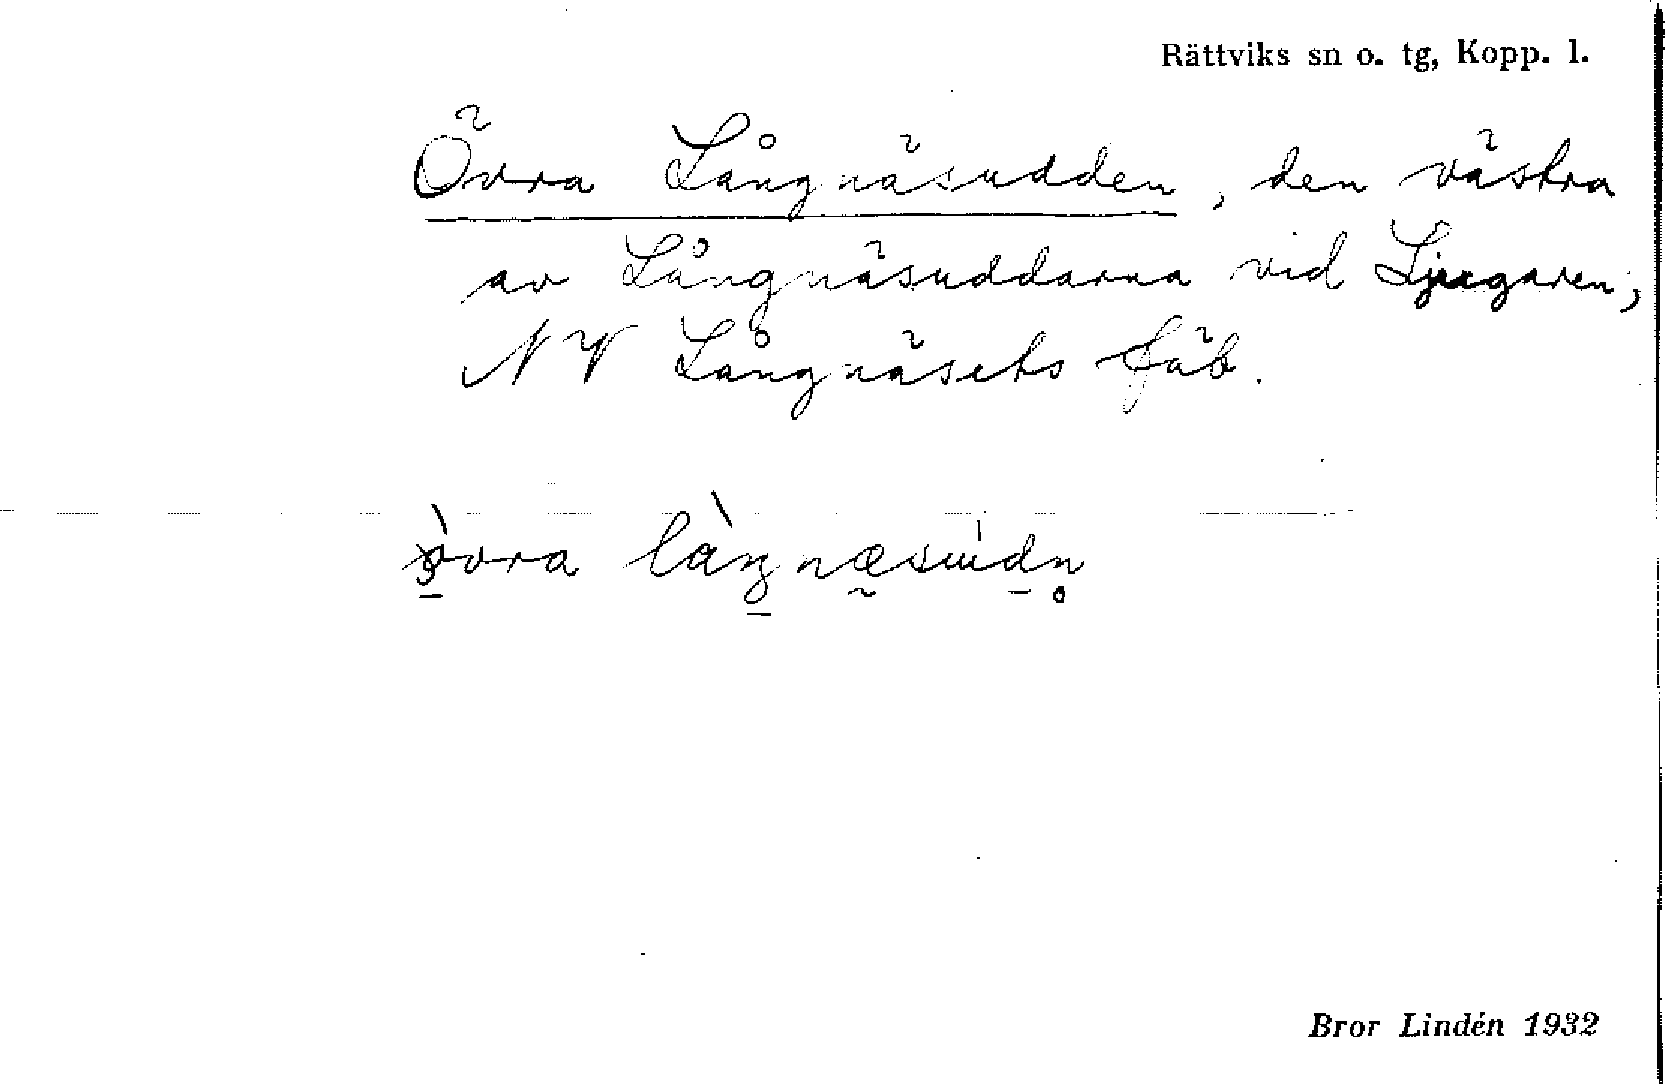 Rättviks sn o. tg, Kopp. l.
Övra Långnäsudden, den västra
av Långnäsuddarna vid Ljugaren,
NV Långnäsets fäb.
Bror Lindén 1932